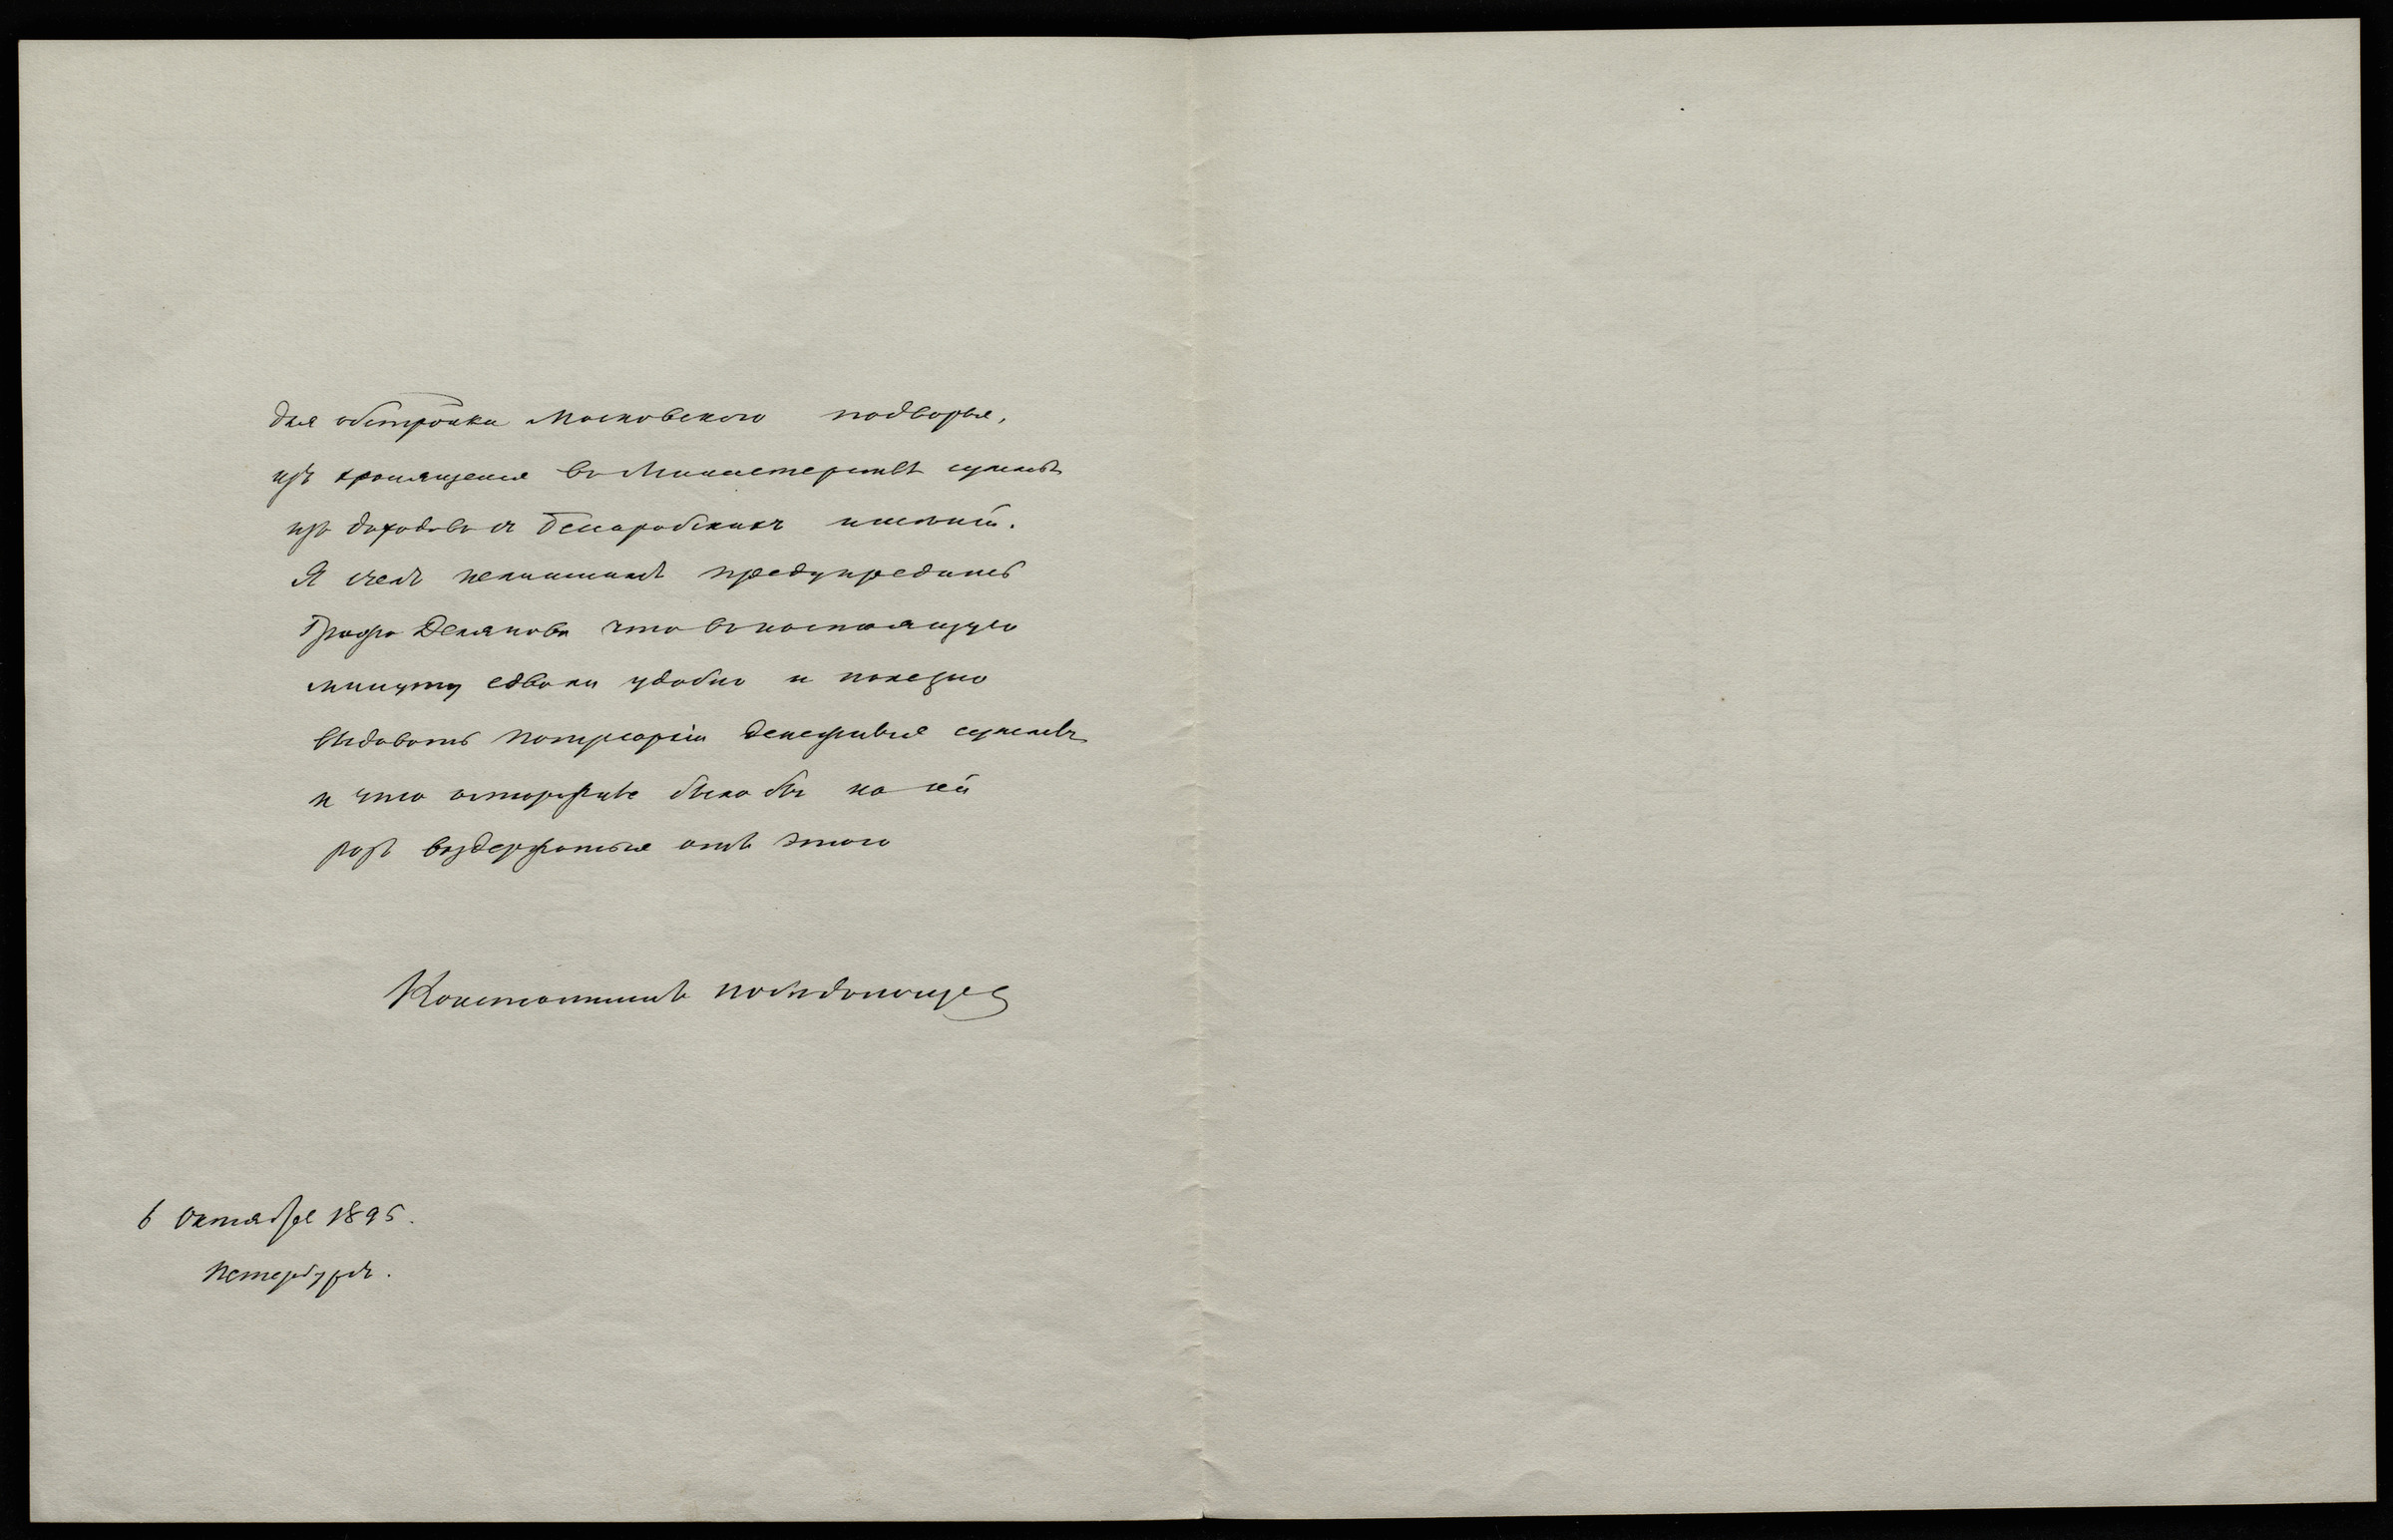 для обстройки Московского подворья,
изъ хранящихся въ Министерствѣ суммъ
изъ доходовъ съ Бессарабскихъ имѣній.
Я счелъ нелишнимъ предупредить
Графа Делянова что въ настоящую
минуту едва ли удобно и полезно
выдавать Патріархіи денежныя суммы
и что осторожнѣе было бы на сей
разъ воздержаться отъ этого
Константинъ Победоносцев
6 Октября 1895.
Петербургъ.